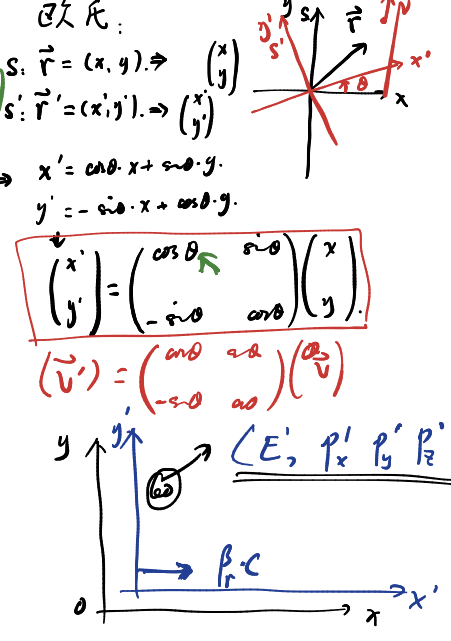 欧氏:
y S
y' S'
r⃗
x'
θ
x
S: r⃗ = (x, y). ⇒ (x y)
S': r⃗' = (x', y'). ⇒ (x' y')
⇒ x' = cosθ·x + sinθ·y.
y' = -sinθ·x + cosθ·y.
(x' y') = (cosθ sinθ -sinθ cosθ) (x y).
(v⃗') = (cosθ sinθ -sinθ cosθ) (v⃗)
y y'
(E', p'x p'y p'z
βr·c
0 x x'